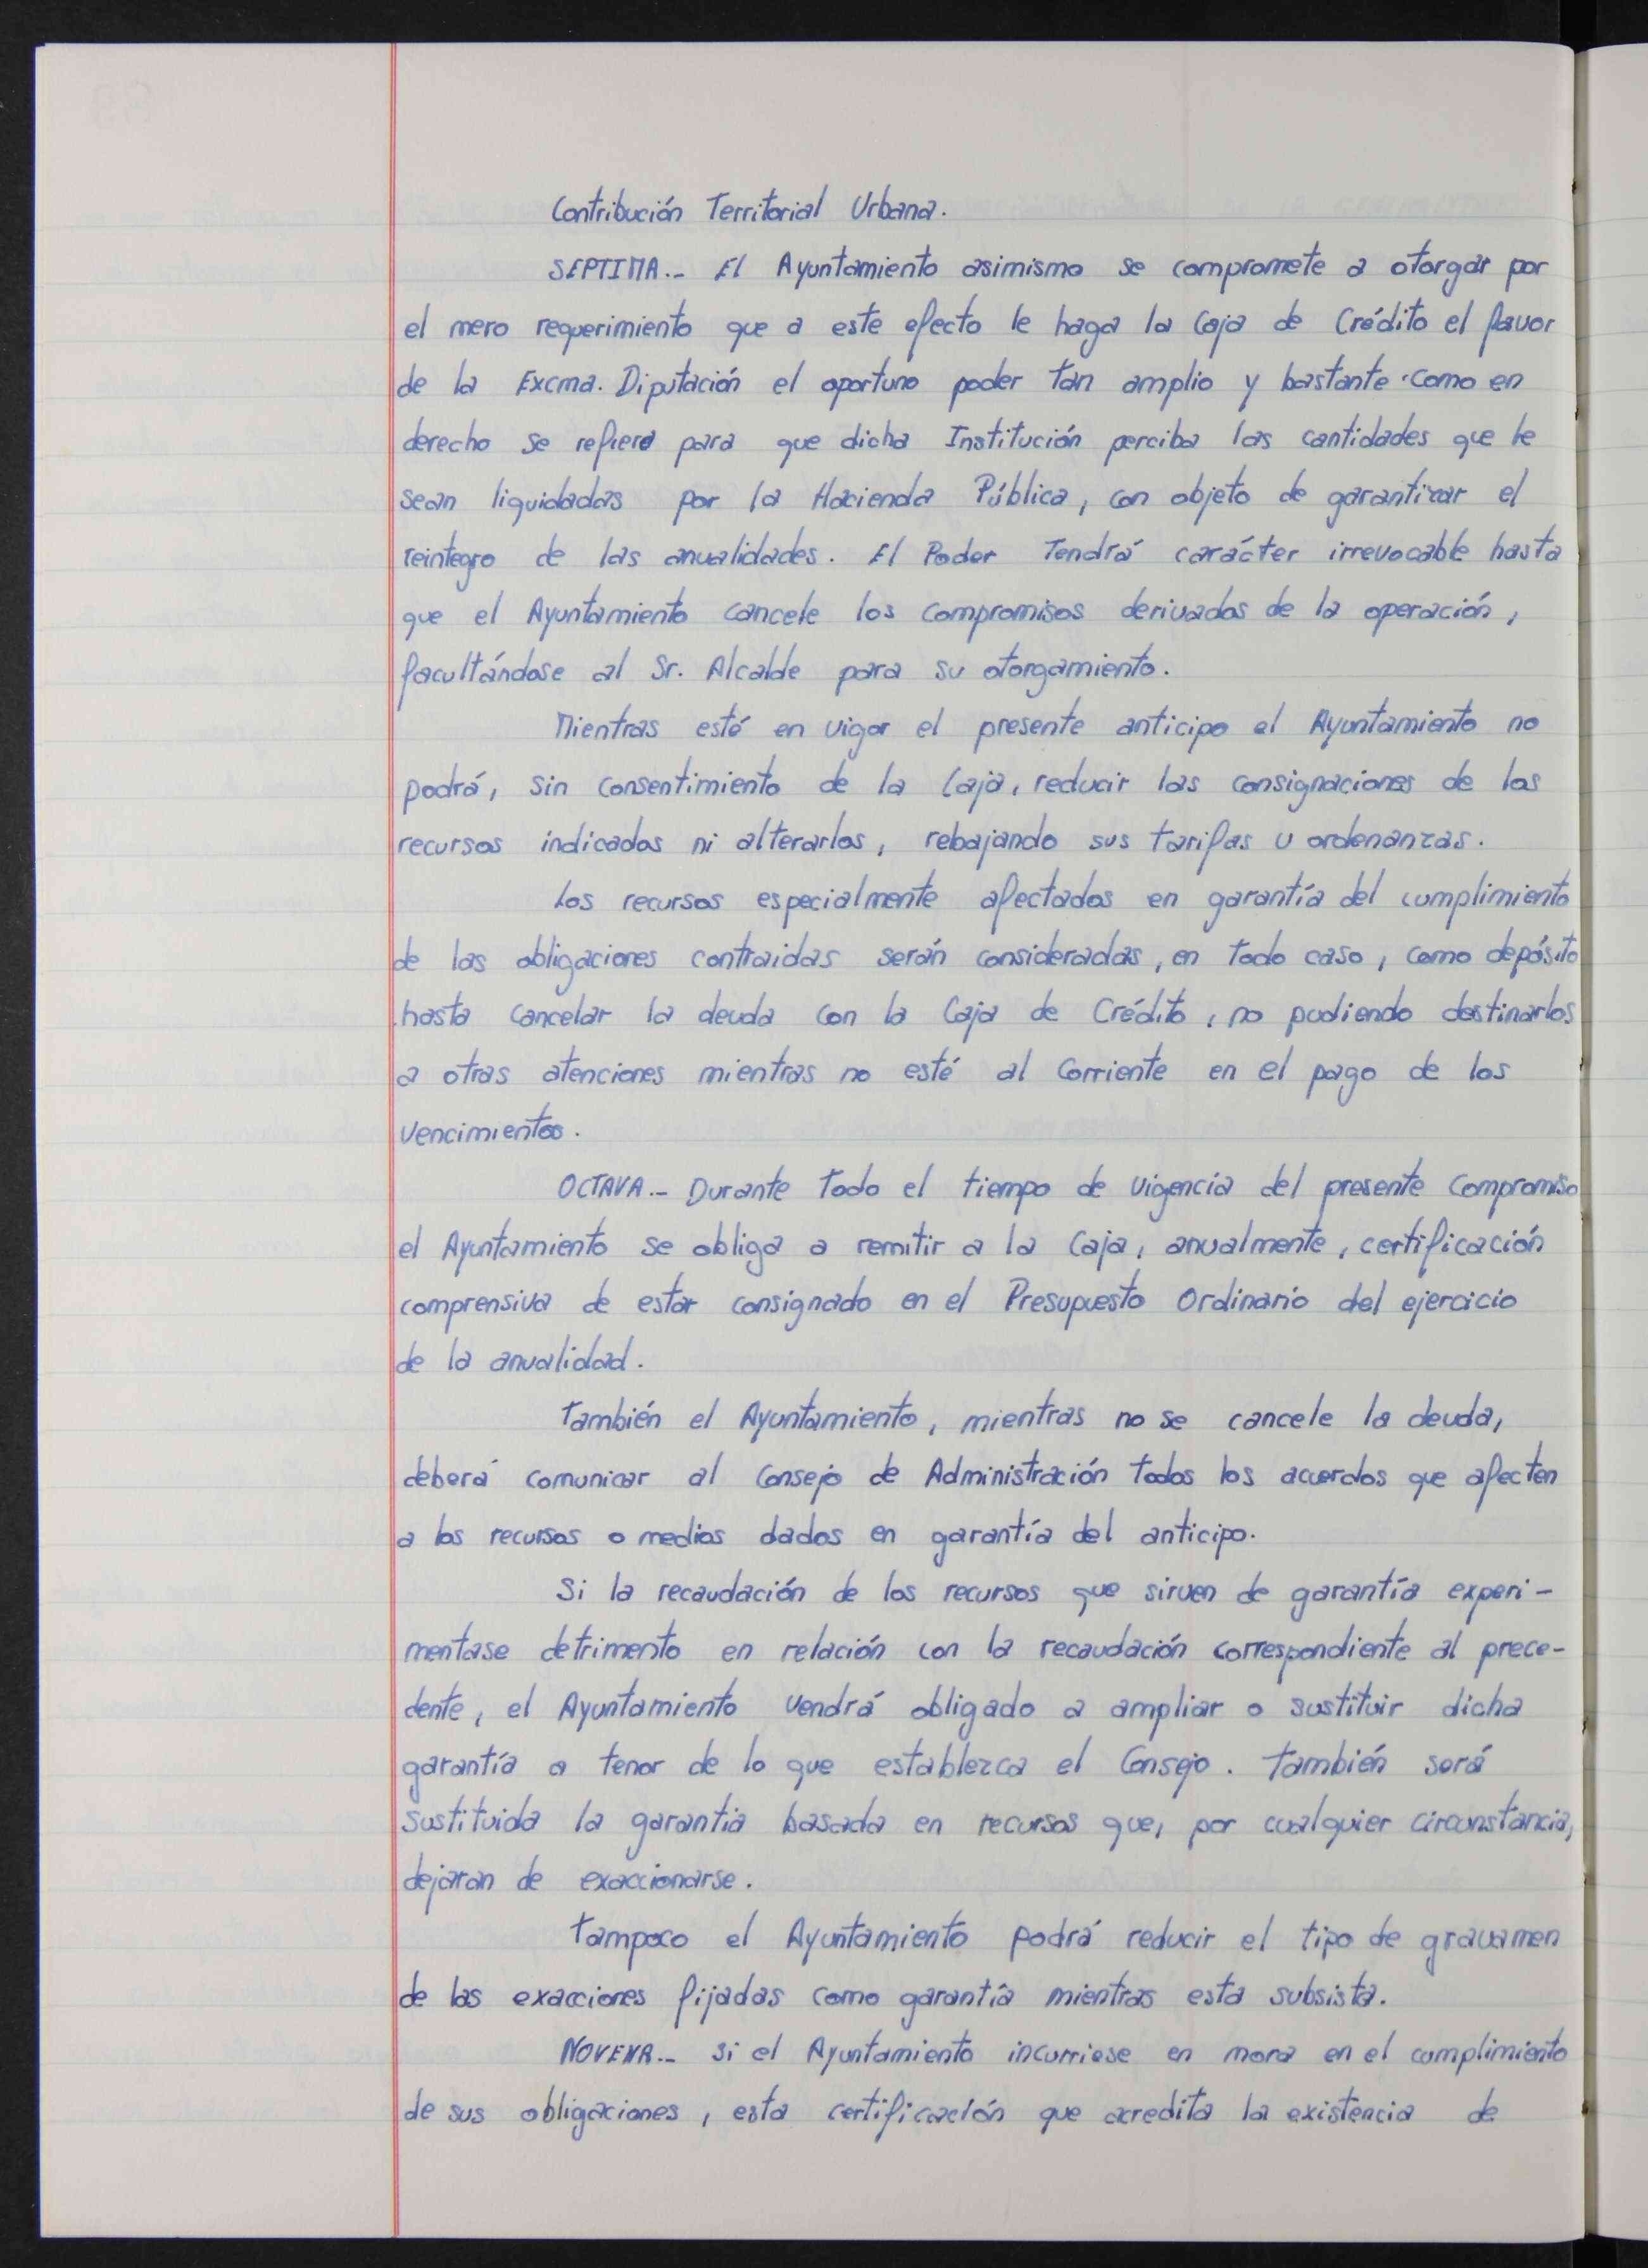 Contribución Territorial Urbana.
SEPTIMA.- El Ayuntamiento asimismo se compromete a otorgar por
el mero requerimiento que a este efecto le haga la Caja de Crédito el favor
de la Excma. Diputación el oportuno poder tan amplio y bastante como en
derecho se refiere para que dicha Institución perciba las cantidades que le
sean liquidadas por la Hacienda Pública, con objeto de garantizar el
reintegro de las anualidades. El Poder tendrá carácter irrevocable hasta
que el Ayuntamiento cancele los compromisos derivados de la operación,
facultándose al Sr. Alcalde para su otorgamiento.
Mientras esté en vigor el presente anticipo el Ayuntamiento no
podrá, sin consentimiento de la Caja, reducir las consignaciones de los
recursos indicados ni alterarlos, rebajando sus tarifas u ordenanzas.
Los recursos especialmente afectados en garantía del cumplimiento
de las obligaciones contraidas serán consideradas, en todo caso, como depósito
hasta cancelar la deuda con la Caja de Crédito, no pudiendo destinarlos
a otras atenciones mientras no esté al corriente en el pago de los
vencimientos.
OCTAVA.- Durante todo el tiempo de vigencia del presente compromiso
el Ayuntamiento se obliga a remitir a la Caja, anualmente, certificación
comprensiva de estar consignado en el Presupuesto Ordinario del ejercicio
de la anualidad.
También el Ayuntamiento, mientras no se cancele la deuda,
deberá comunicar al Consejo de Administración todos los acuerdos que afecten
a los recursos o medios dados en garantía del anticipo.
Si la recaudación de los recursos que sirven de garantía experi-
mentase detrimento en relación con la recaudación correspondiente al prece-
dente, el Ayuntamiento vendrá obligado a ampliar o sustituir dicha
garantía a tenor de lo que establezca el Consejo. También será
sustituida la garantia basada en recursos que, por cualquier circunstancia,
dejaran de exaccionarse.
Tampoco el Ayuntamiento podrá reducir el tipo de gravamen
de las exacciones fijadas como garantía mientras esta subsista.
NOVENA.- Si el Ayuntamiento incurriese en mora en el cumplimiento
de sus obligaciones, esta certificación que acredita la existencia de